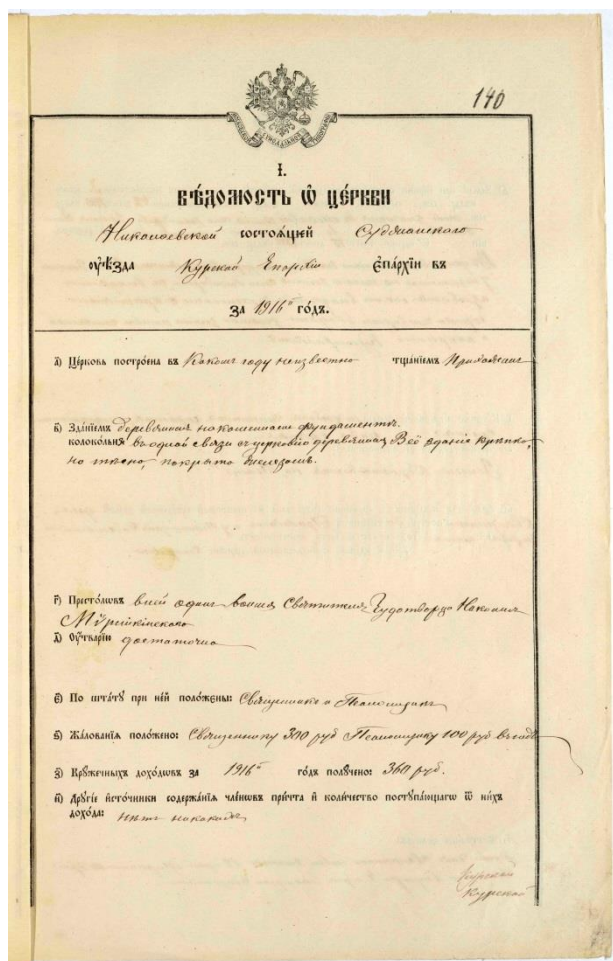 140
І.
ВѢ́ДОМОСТЬ Ѽ ЦЕ́РКВИ
Николаевской состоѧ́щей Суджанскаго
оуѣ́зда Курской Епархіи Єпа́рхїи въ
За 1916й го́дъ.
а҃) Це́рковь постро́ена въ Какомъ году неизвестно тща́нїемъ Прихожанъ
в҃) Зда́нїемъ деревянная на каменномъ фундаментѣ.
колоко́льнѧ въ одной связи съ церковію деревянная Всё зданіе крѣпко,
но тѣсно, покрыто желѣзомъ.
г҃) Престо́лѡвъ въ ней одинъ во имя Святителя Чудотворца Николая
Мѵрликійскаго
д҃) Оу҆́тварїю достаточна
є҃) По шта́тꙋ при не́й поло́жены: Священникъ и Псаломщикъ
ѕ҃) Жа́лованїѧ поло́жено: Священнику 300 руб Псаломщику 100 руб въ годъ
з҃) Крꙋ́жечныхъ дохо́дѡвъ за 1916й го́дъ полꙋ́чено: 360 руб.
и҃) Дрꙋгі́е и҆сто́чники содержа́нїѧ чле́нѡвъ при́чта и҆ коли́чество постꙋпа́ющагѡ ѿ ни́хъ
дохо́да: нѣтъ никакихъ
Курской